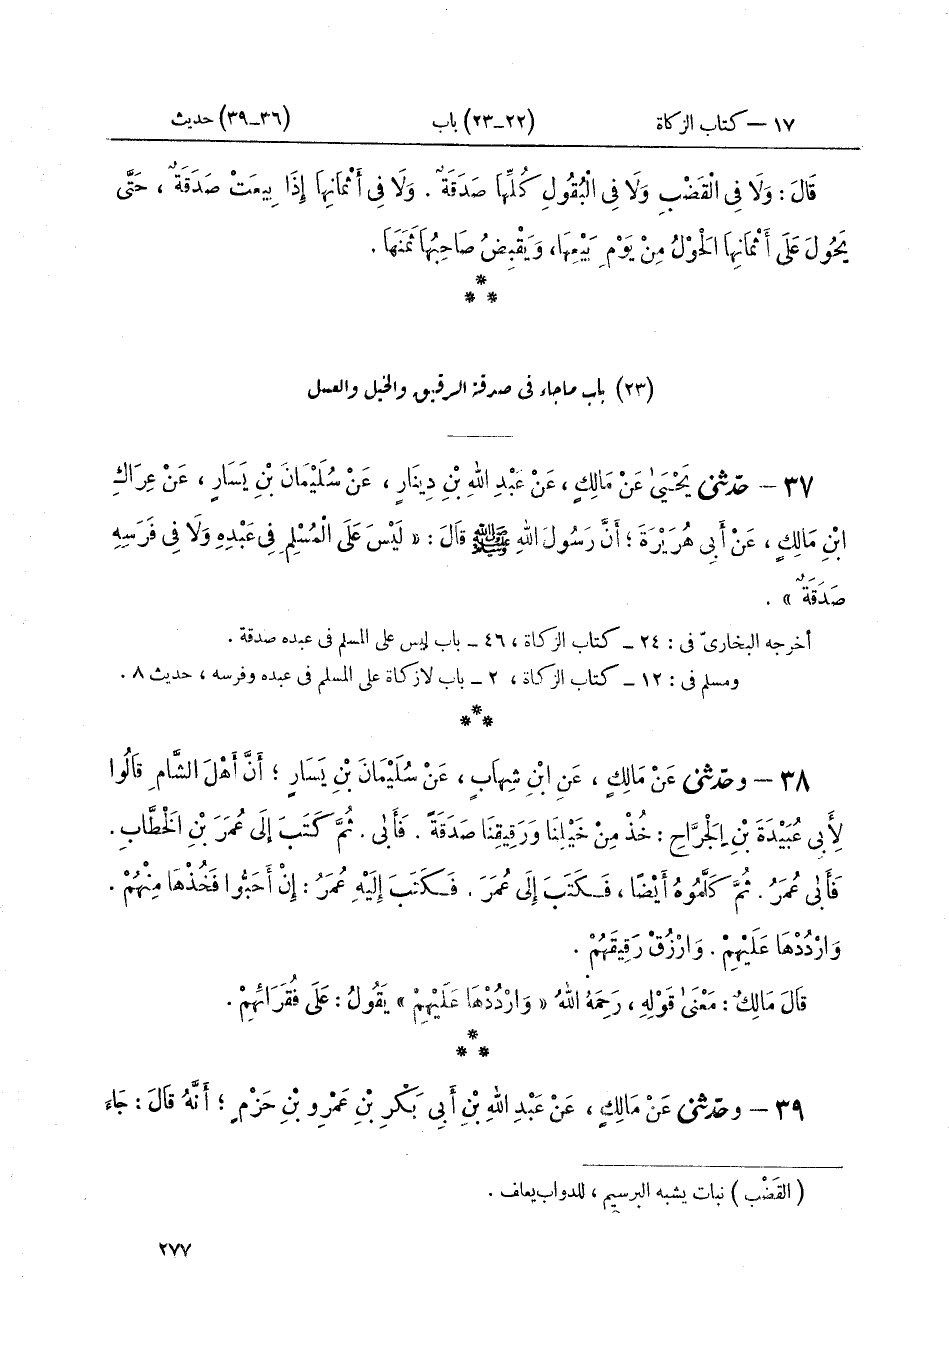 ١٧ – كتاب الزكاة (٢٢_٢٣) باب (٣٦_٣٩) حديث
قَالَ : وَلَا فِى الْقَضْبِ وَلَا فِى الْبُقُولِ كُلِّهَا صَدَقَةٌ . وَلَا فِى أَثْمَانِهَا إِذَا بِيعَتْ صَدَقَةٌ ، حَتَّى
يَحُولَ عَلَى أَثْمَانِهَا الْحَوْلُ مِنْ يَوْمِ بَيْعِهَا، وَيَقْبِضُ صَاحِبُهَا ثَمَنَهَا .
* * *
(٢٣) باب ماجاء فى صدقة الرقيق والخيل والعسل
٣٧ – حدّثنى يَحْيَىٰ عَنْ مَالِكٍ ، عَنْ عَبْدِ اللهِ بْنِ دِينَارٍ ، عَنْ سُلَيْمَانَ بْنِ يَسَارٍ ، عَنْ عِرَاكِ
ابْنِ مَالِكٍ ، عَنْ أَبِى هُرَيْرَةَ ؛ أَنَّ رَسُولَ اللهِ ﷺ قَالَ : « لَيْسَ عَلَى الْمُسْلِمِ فِى عَبْدِهِ وَلَا فِى فَرَسِهِ
صَدَقَةٌ » .
أخرجه البخارىّ فى : ٢٤ _ كتاب الزكاة ، ٤٦ _ باب ليس على المسلم فى عبده صدقة .
ومسلم فى : ١٢ _ كتاب الزكاة ، ٢ _ باب لازكاة على المسلم فى عبده وفرسه ، حديث ٨ .
* * *
٣٨ – وحدّثنى عَنْ مَالِكٍ ، عَنِ ابْنِ شِهَابٍ ، عَنْ سُلَيْمَانَ بْنِ يَسَارٍ ؛ أَنَّ أَهْلَ الشَّامِ قَالُوا
لِأَبِى عُبَيْدَةَ بْنِ الْجَرَّاحِ : خُذْ مِنْ خَيْلِنَا وَرَقِيقِنَا صَدَقَةً . فَأَبَى . ثُمَّ كَتَبَ إِلَى عُمَرَ بْنِ الْخَطَّابِ .
فَأَبَى عُمَرُ . ثُمَّ كَلَّمُوهُ أَيْضًا ، فَكَتَبَ إِلَى عُمَرَ . فَكَتَبَ إِلَيْهِ عُمَرُ : إِنْ أَحَبُّوا فَخُذْهَا مِنْهُمْ .
وَارْدُدْهَا عَلَيْهِمْ . وَارْزُقْ رَقِيقَهُمْ .
قَالَ مَالِكٌ : مَعْنَىٰ قَوْلِهِ ، رَحِمَهُ اللهُ « وَارْدُدْهَا عَلَيْهِمْ » يَقُولُ : عَلَى فُقَرَائِهِمْ .
* * *
٣٩ – وحدّثنى عَنْ مَالِكٍ ، عَنْ عَبْدِ اللهِ بْنِ أَبِى بَكْرِ بْنِ عَمْرِو بْنِ حَزْمٍ ؛ أَنَّهُ قَالَ : جَاءَ
( القَضْب ) نبات يشبه البرسيم ، للدواب يعلف .
٢٧٧